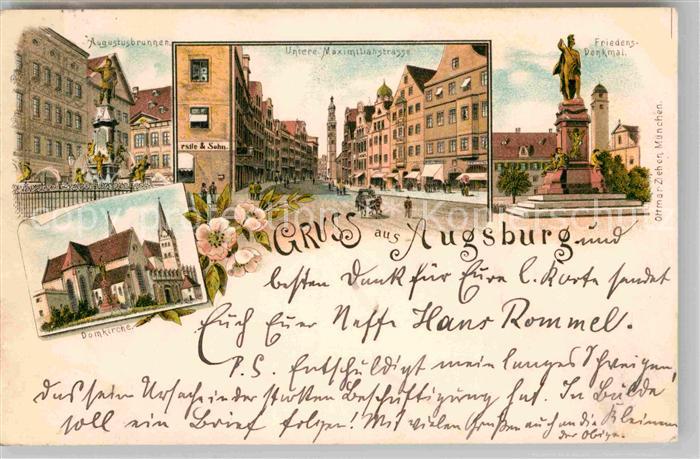 Augustusbrunnen.
Untere Maximilianstrasse
Friedens-
Denkmal.
rstle & Sohn.
Dittmar Zieher, München.
Domkirche.
GRUSS aus Augsburg und
besten Dank für Eure l. Karte sendet
Euch Euer Neffe Hans Rommel.
P.S. Entschuldigt mein langes Schweigen,
das sein Ursache in der starken Beschäftigung hat. In Bälde
soll ein Brief folgen! Mit vielen Grüßen auch an die Kleinen
der Obige.